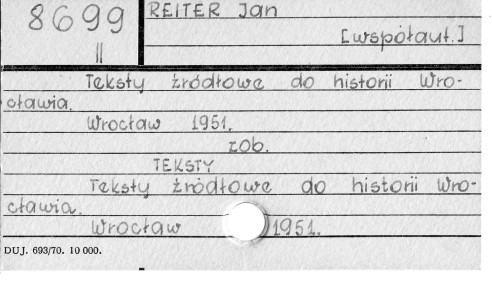 8699
II
REITER Jan
[współaut.]
Teksty źródłowe do historii Wro-
cławia.
Wrocław 1951.
zob.
TEKSTY
Teksty źródłowe do historii Wro-
cławia.
Wrocław 1951.
DUJ. 693/70. 10 000.